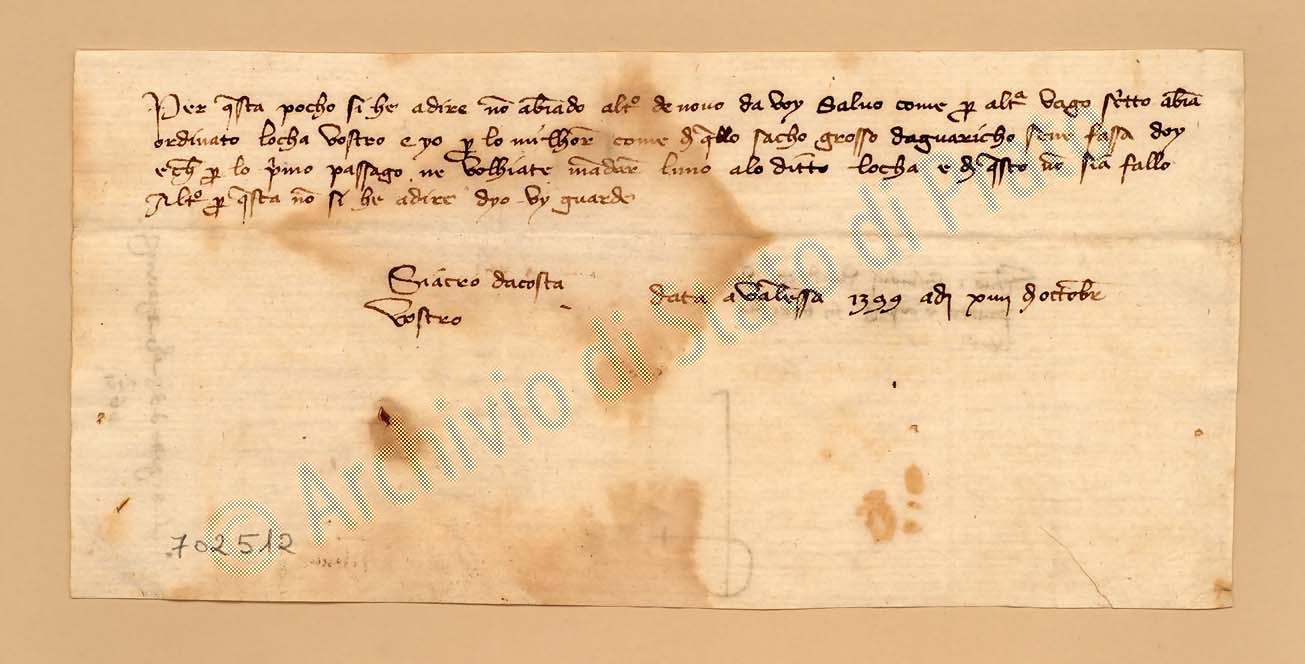 Per q̄sta pocho si he a dire nō abiādo alt° de novo da voy Salvo come ꝑ alt̄a vago sc̄tto abiā
ordinato locha vostro e yo ꝑ lo milhor̄ come d̄ q̄llo sacho grosso daguaricho sene fassa doy
e ch̄ ꝑ lo p̄mo passago ne volhiate mādar̄ luno alo ditto locha e d̄ q̄sto nō sia fallo
Alt° ꝑ q̄sta nō si he a dire dyo vy guarde
dacosta
vostro
data a valessa 1399 adj xiiij d̄ octobr̄
702512
© Archivio di Stato di Prato